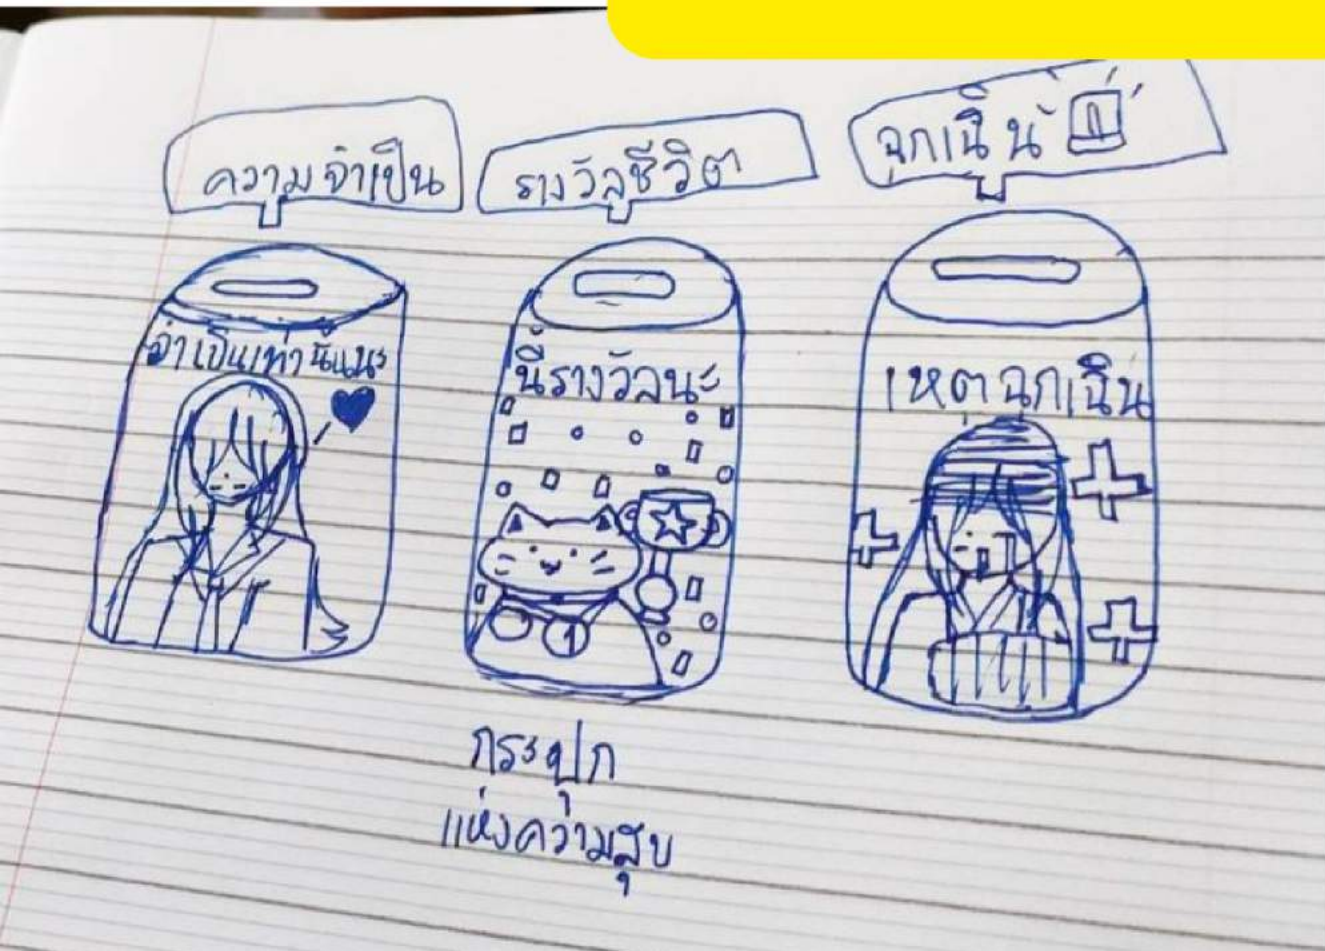 ความจำเป็น
รางวัลชีวิต
ฉุกเฉิน
จำเป็นเท่านั้นนะ
นี้รางวัลนะ
เหตุฉุกเฉิน
1
กระปุก
แห่งความสุข